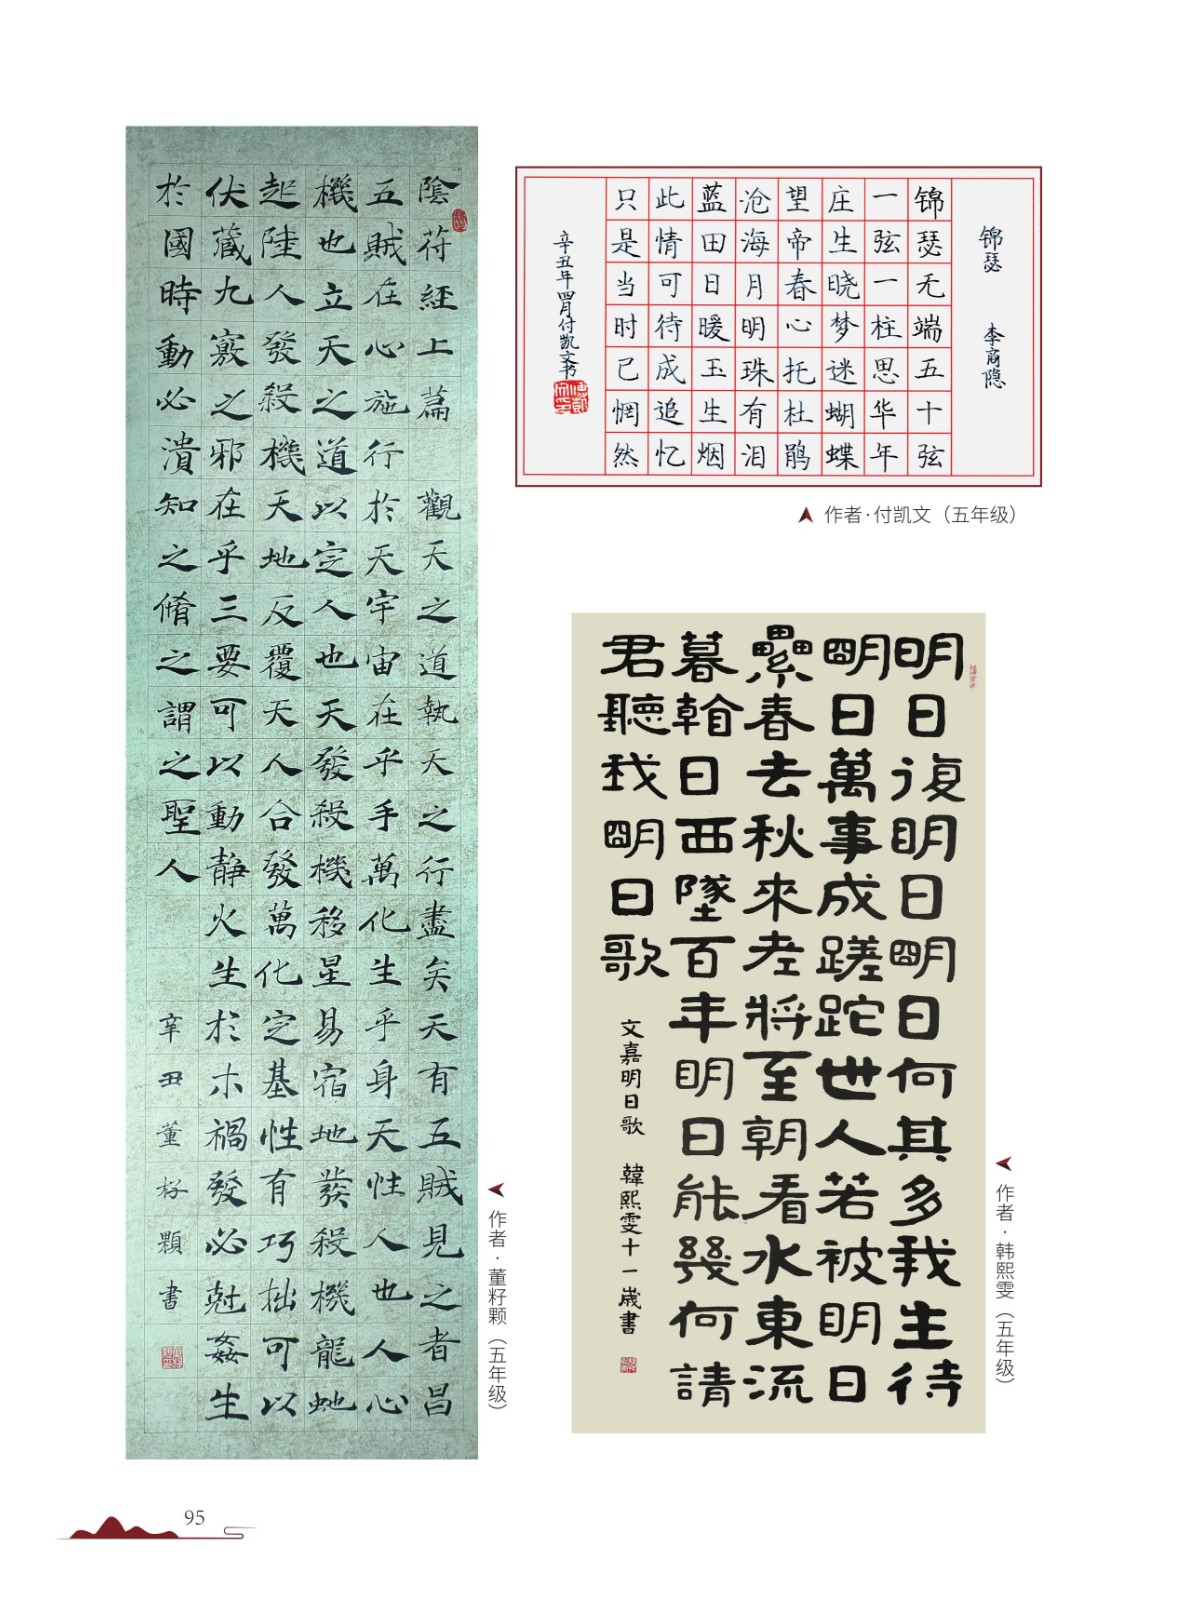 陰符經上篇 觀天之道執天之行盡矣天有五賊見之者昌
五賊在心施行於天宇宙在乎手萬化生乎身天性人也人心
機也立天之道以定人也天發殺機移星易宿地發殺機龍虵
起陸人發殺機天地反覆天人合發萬化定基性有巧拙可以
伏藏九竅之邪在乎三要可以動静火生於木禍發必尅姦生
於國時動必潰知之脩之謂之聖人 辛丑董籽顆書
作者·董籽颗（五年级）
锦瑟 李商隐
锦瑟无端五十弦
一弦一柱思华年
庄生晓梦迷蝴蝶
望帝春心托杜鹃
沧海月明珠有泪
蓝田日暖玉生烟
此情可待成追忆
只是当时已惘然
辛丑年四月付凯文书
作者·付凯文（五年级）
明日復明日明日何其多我生待
明日萬事成蹉跎世人若被明日
纍春去秋來老將至朝看水東流
暮日西墜百年明日能幾何請
君聽我明日歌
文嘉明日歌 韓熙雯十一歲書
作者·韩熙雯（五年级）
95